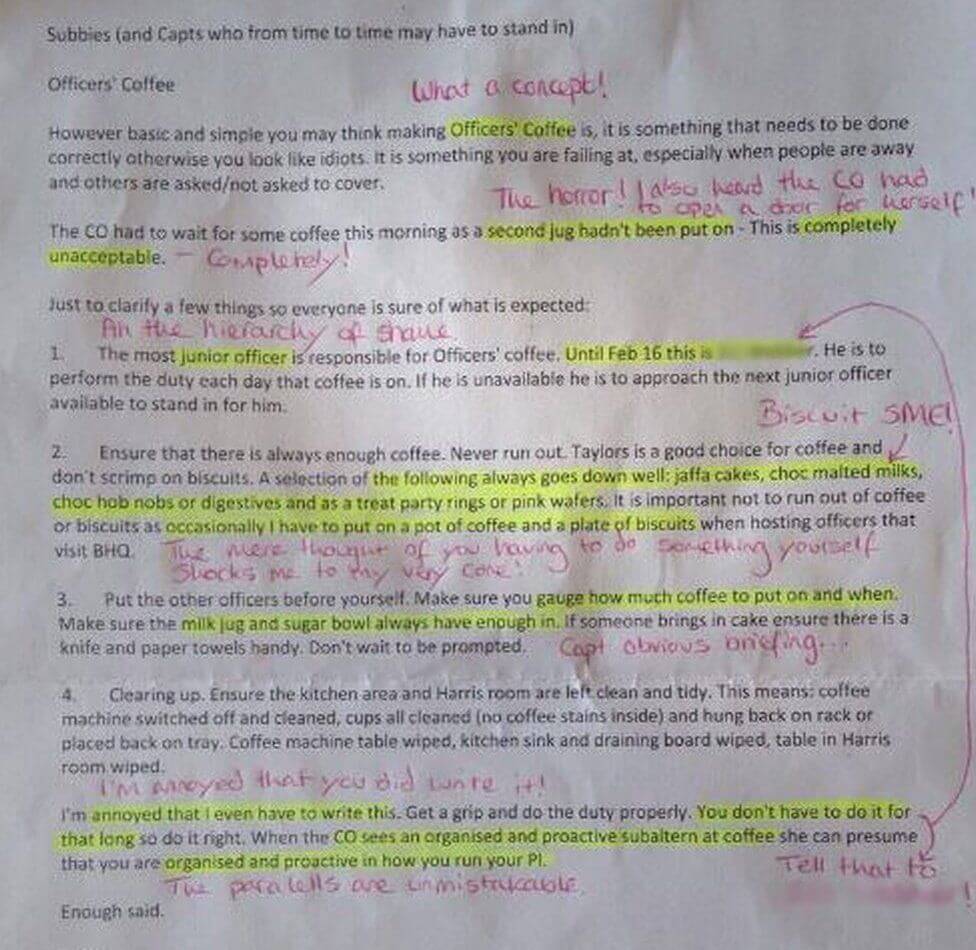 Subbies (and Capts who from time to time may have to stand in)
Officers' Coffee
What a concept!
However basic and simple you may think making Officers' Coffee is, it is something that needs to be done
correctly otherwise you look like idiots. It is something you are failing at, especially when people are away
and others are asked/not asked to cover.
The horror! I also heard the CO had
to open a door for herself!
The CO had to wait for some coffee this morning as a second jug hadn't been put on - This is completely
unacceptable. - Completely!
Just to clarify a few things so everyone is sure of what is expected:
Ah the hierarchy of shame
1. The most junior officer is responsible for Officers' coffee. Until Feb 16 this is . He is to
perform the duty each day that coffee is on. If he is unavailable he is to approach the next junior officer
available to stand in for him.
Biscuit SME!
2. Ensure that there is always enough coffee. Never run out. Taylors is a good choice for coffee and
don't scrimp on biscuits. A selection of the following always goes down well: jaffa cakes, choc malted milks,
choc hob nobs or digestives and as a treat party rings or pink wafers. It is important not to run out of coffee
or biscuits as occasionally I have to put on a pot of coffee and a plate of biscuits when hosting officers that
visit BHQ. The mere thought of you having to do something yourself
shocks me to my very core!
3. Put the other officers before yourself. Make sure you gauge how much coffee to put on and when.
Make sure the milk jug and sugar bowl always have enough in. If someone brings in cake ensure there is a
knife and paper towels handy. Don't wait to be prompted. Capt obvious briefing...
4. Clearing up. Ensure the kitchen area and Harris room are left clean and tidy. This means: coffee
machine switched off and cleaned, cups all cleaned (no coffee stains inside) and hung back on rack or
placed back on tray. Coffee machine table wiped, kitchen sink and draining board wiped, table in Harris
room wiped.
I'm annoyed that you did write it!
I'm annoyed that I even have to write this. Get a grip and do the duty properly. You don't have to do it for
that long so do it right. When the CO sees an organised and proactive subaltern at coffee she can presume
that you are organised and proactive in how you run your Pl.
Tell that to
!
The paralells are unmistakable.
Enough said.